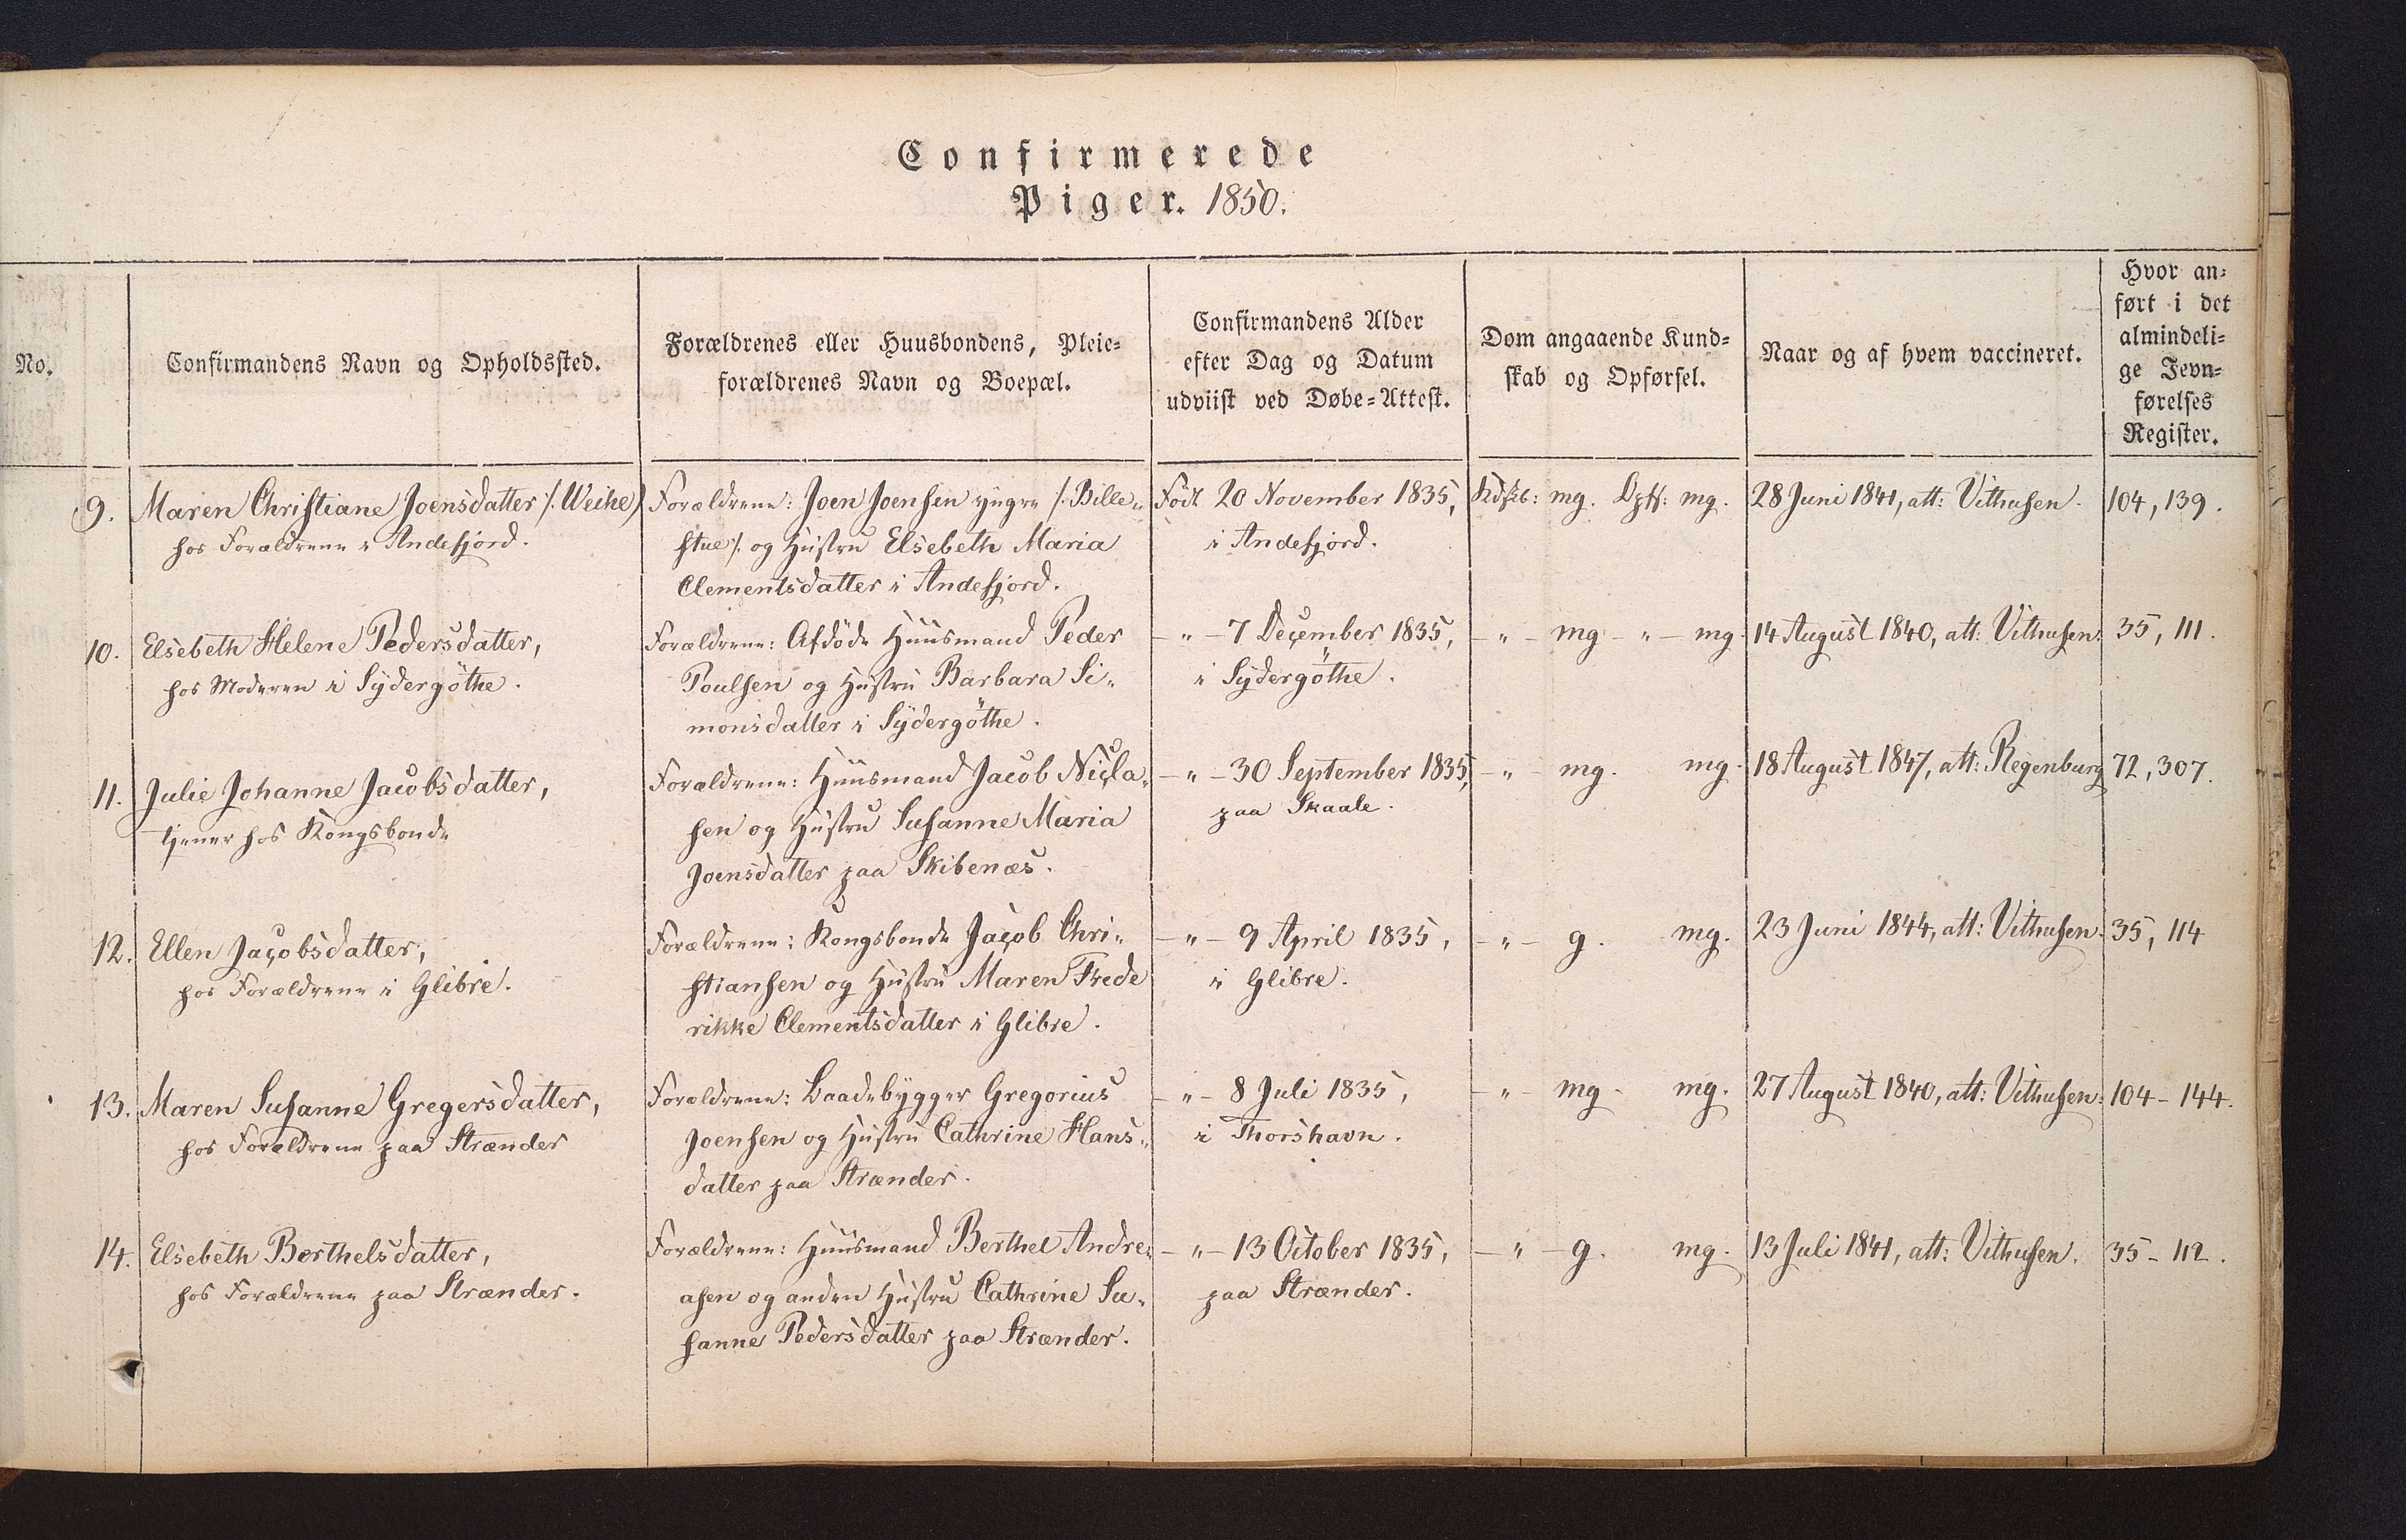 Confirmerede
Piger. 1850.
No.
Confirmandens Navn og Opholdssted.
Forældrenes eller Huusbondens, Pleie-
forældrenes Navn og Boepæl.
Confirmandens Alder
efter Dag og Datum
udviist ved Døbe-Attest.
Dom angaaende Kund-
skab og Opførsel.
Naar og af hvem vaccineret.
Hvor an-
ført i det
almindeli-
ge Jevn-
førelses
Register.
9.
Maren Christiane Joensdatter /: Weihe)
hos Forældrene i Andefjord.
Forældrene: Joen Joensen yngre /: Bille-
stue/: og Hustru Elsebeth Maria
Clementsdatter i Andefjord.
Født 20 November 1835,
i Andefjord.
Kdskb: mg. Opf: mg.
28 Juni 1841, att: Vithusen.
104, 139.
10.
Elsebeth Helene Pedersdatter,
hos Moderen i Sydergöthe.
Forældrene: Afdöde Huusmand Peder
Poulsen og Hustru Barbara Si-
monsdatter i Sydergöthe.
- " - 7 December 1835,
i Sydergöthe.
- " - mg - " - mg.
14 August 1840, att: Vithusen.
35, 111.
11.
Julie Johanne Jacobsdatter,
tjener hos Kongsbonde
Forældrene: Huusmand Jacob Nicla-
sen og Hustru Susanne Maria
Joensdatter paa Skibenæs.
- " - 30 September 1835,
paa Skaale.
- " - mg. mg.
18 August 1847, att: Regenburg
72, 307.
12.
Ellen Jacobsdatter,
hos Forældrene i Glibre.
Forældrene: Kongsbonde Jacob Chri-
stiansen og Hustru Maren Frede
rikke Clementsdatter i Glibre.
- " - 9 April 1835,
i Glibre.
- " - g. mg.
23 Juni 1844, att: Vithusen.
35, 114
13.
Maren Susanne Gregersdatter,
hos Forældrene paa Strænder
Forældrene: Baadebygger Gregorius
Joensen og Hustru Cathrine Hans-
datter paa Strænder.
- " - 8 Juli 1835,
i Thorshavn.
- " - mg - mg.
27 August 1840, att: Vithusen.
104 - 144.
14.
Elsebeth Berthelsdatter,
hos Forældrene paa Strænder.
Forældrene: Huusmand Berthel Andre-
asen og anden Hustru Cathrine Su-
sanne Pedersdatter paa Strænder.
- " - 13 October 1835,
paa Strænder.
- " - g. mg.
13 Juli 1841, att: Vithusen.
35 - 112.